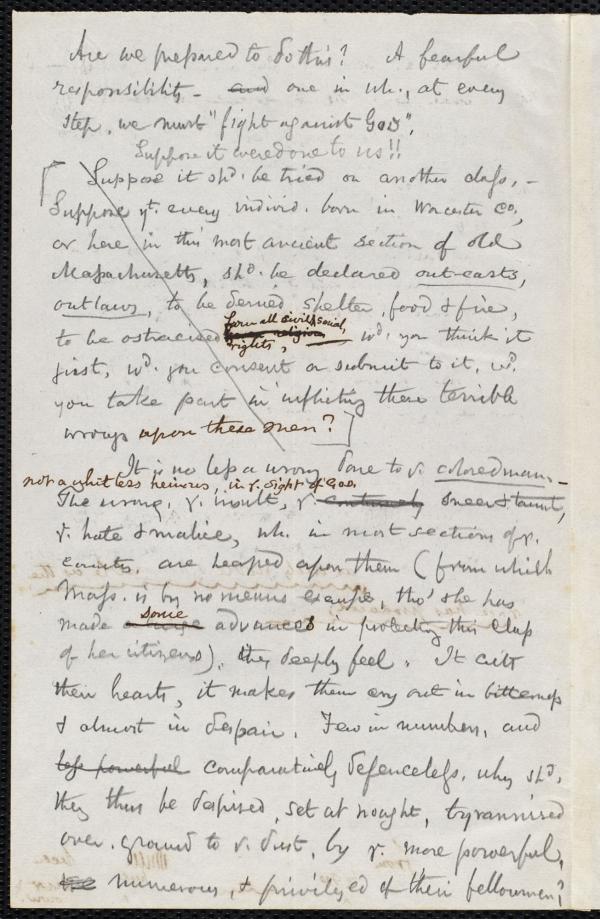 Are we prepared to do this? A fearful
responsibility - and one in wh., at every
step, we must "fight against God".
Suppose it were done to us!!
Suppose it shd. be tried on another class, -
Suppose yt. every individ. born in Worcester Co.,
or here in this most ancient section of old
Massachusetts, shd. be declared out-casts,
outlaws, to be denied shelter, food & fire,
to be ostracised from all civil, & social,
rights, religious wd. you think it
just, wd. you consent or submit to it, wd.
you take part in inflicting these terrible
wrongs upon these men?]
It is no less a wrong done to ye. colored man, -
not a whit less heinous, in ye. sight of God.
The wrong, ye. insult, ye. contumely sneer & taunt,
ye. hate & malice, wh. in most sections of ye.
country, are heaped upon them (from which
Mass. is by no means exempt, tho' she has
made some advances in protecting this class
of her citizens), they deeply feel. It cuts
their hearts, it makes them cry out in bitterness
& almost in despair. Few in numbers, and
less powerful comparatively defenceless, why shd.
they thus be despised, set at nought, tyrannised
over, ground to ye. dust, by ye. more powerful,
numerous, & privileged of their fellowmen?